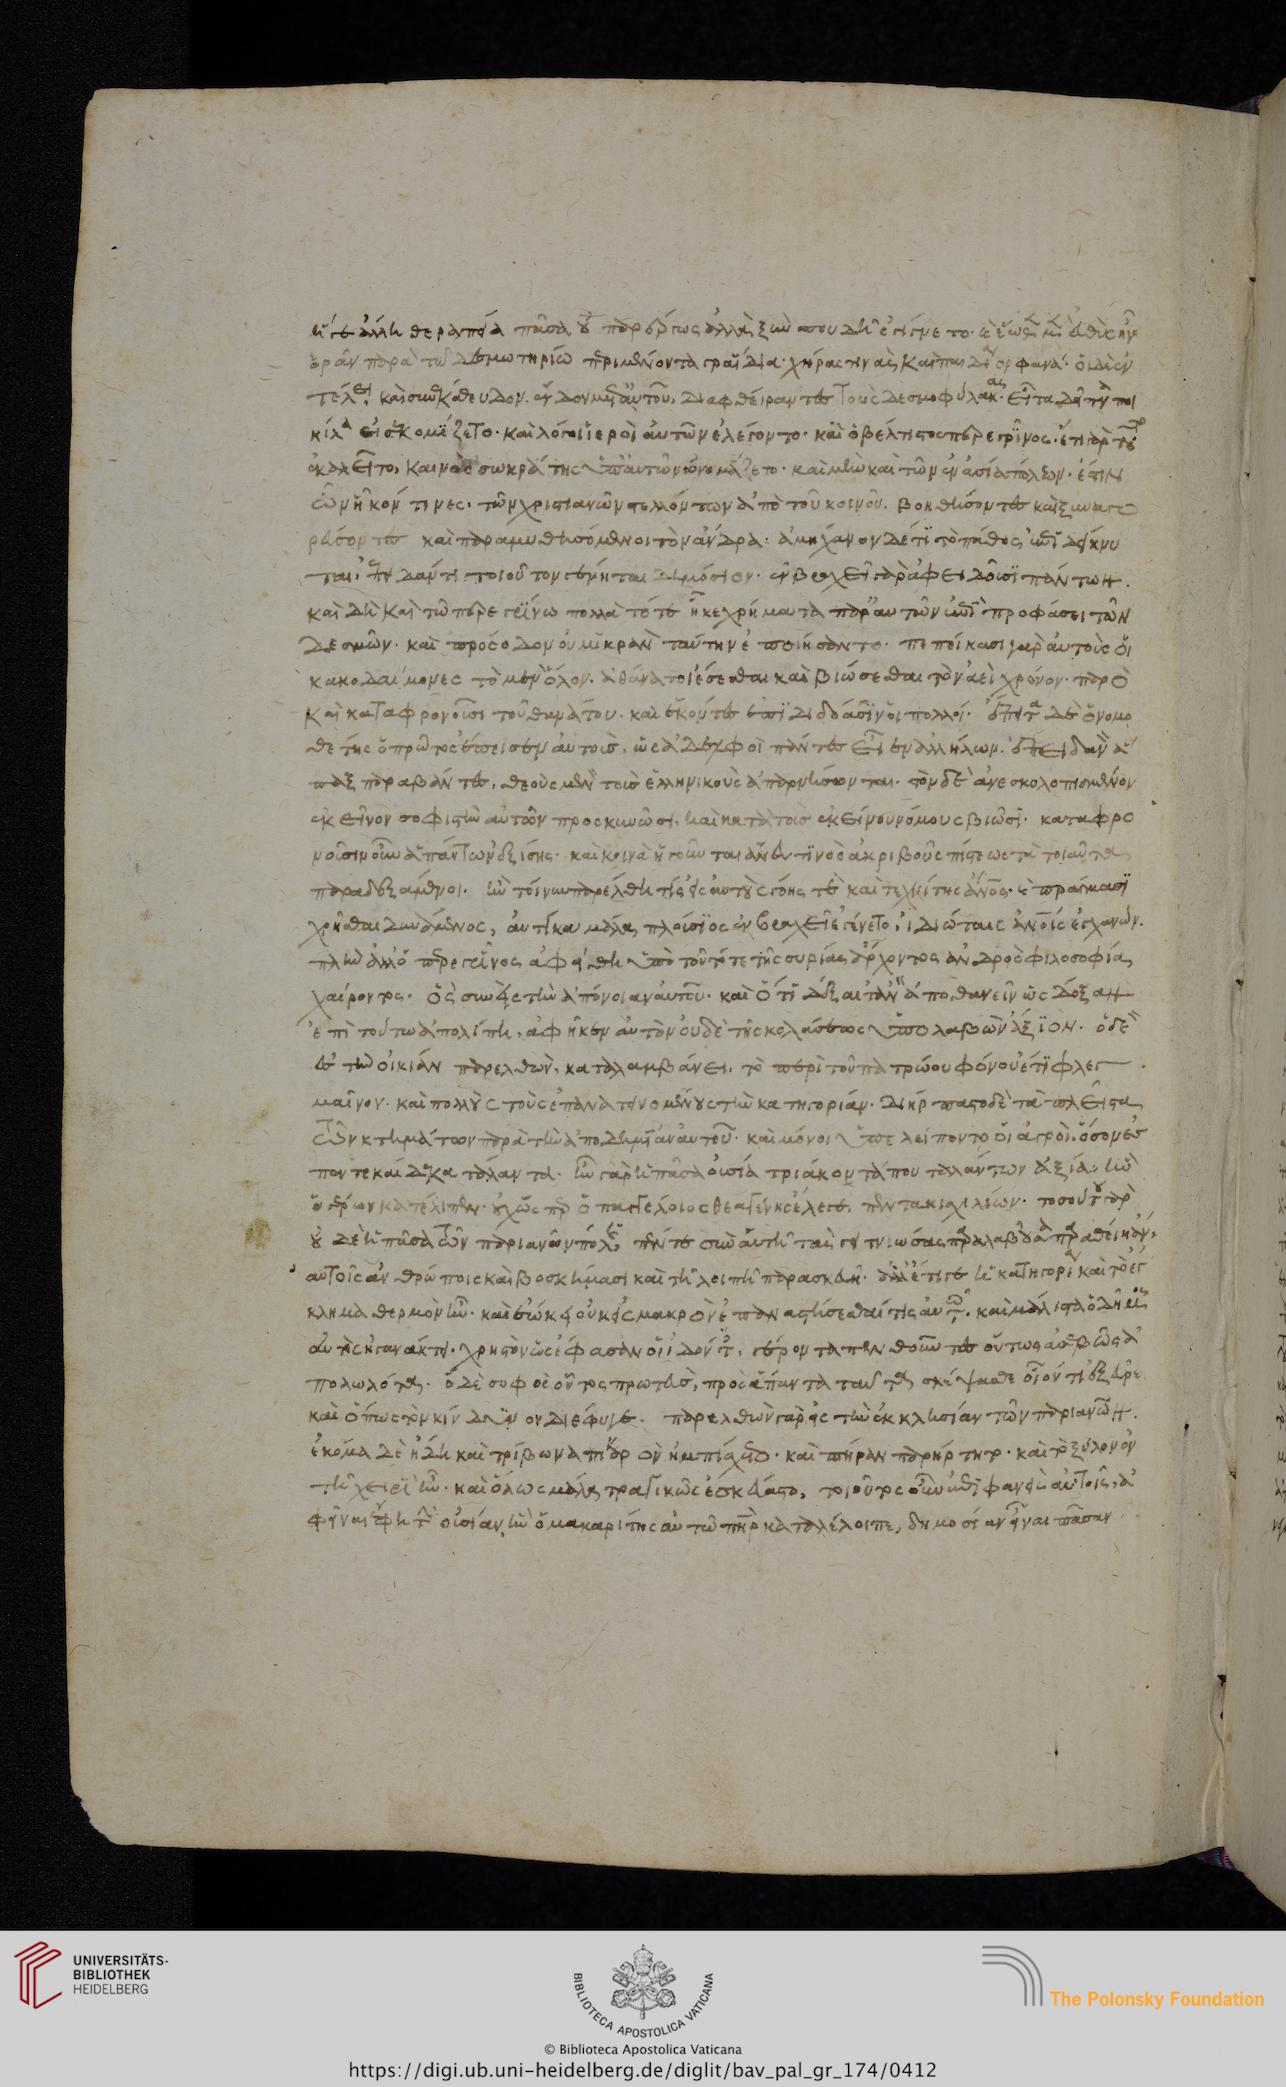 ἥ τε ἄλλη θεραπεία πᾶσα οὐ παρέργως ἀλλὰ ξὺν σπουδῇ ἐγίγνετο· καὶ ἕωθεν μὲν εὐθὺς ἦν
ὁρᾶν παρὰ τῷ δεσμωτηρίῳ περιμένοντα γραΐδια· χήρας τινὰς καὶ παιδία ὀρφανά· οἱ δὲ ἐν
τέλει, καὶ συνεκάθευδον. ἔνδον μετ' αὐτοῦ, διαφθείραντες τοὺς δεσμοφύλακας. εἶτα δεῖπνα ποι
κίλα εἰσεκομίζετο· καὶ λόγοι ἱεροὶ αὐτῶν ἐλέγοντο· καὶ ὁ βέλτιστος περεγρῖνος· ἔτι γὰρ τοῦτο
ἐκαλεῖτο, καινὸς σωκράτης ὑπ' αὐτῶν ὠνομάζετο· καὶ μὴν καὶ τῶν ἐν ἀσία πόλεων· ἔστιν
ὧν ἧκόν τινες· τῶν χριστιανῶν στελλόντων ἀπὸ τοῦ κοινοῦ. βοηθήσοντες καὶ ξυναγο
ρεύσοντες καὶ παραμυθησόμενοι τὸν ἄνδρα· ἀμήχανον δέ τι τὸ πάθος ἐπιδείκνυ
ται, ἐπειδάν τι τοιοῦτον γένηται δημόσιον· ἐν βραχεῖ γὰρ ἀφειδοῦσι πάντων.
καὶ δὴ καὶ τῷ περεγρίνω πολλὰ τότε ἧκε χρήματα παρ' αὐτῶν ἐπὶ προφάσει τῶν
δεσμῶν· καὶ πρόσοδον οὐ μικρὰν ταύτην ἐποιήσαντο· πεποίκασι γὰρ αὐτοὺς οἱ
κακοδαίμονες τὸ μὲν ὅλον. ἀθάνατοι ἔσεσθαι καὶ βιώσεσθαι τὸν ἀεὶ χρόνον· παρ' ὃ
καὶ καταφρονοῦσι τοῦ θανάτου· καὶ ἑκόντες ἐπιδιδόασιν οἱ πολλοί· ἔπειτα δὲ ὁ νομο
θέτης ὁ πρῶτος ἔπεισεν αὐτοὺς, ὡς ἀδελφοὶ πάντες εἶεν ἀλλήλων. ἐπειδὰν ἅ
παξ παραβάντες, θεοὺς μὲν τοὺς ἑλληνικοὺς ἀπαρνήσωνται· τὸν δὲ ἀνεσκολοπισμένον
ἐκεῖνον σοφιστὴν αὐτῶν προσκυνῶσι, καὶ κατὰ τοὺς ἐκείνου νόμους βιῶσι· καταφρο
νοῦσιν οὖν ἁπάντων ἐξίσης· καὶ κοινὰ ἡγοῦνται ἄνευ τινὸς ἀκριβοῦς πίστεως τὰ τοιαῦτα
παραδεξάμενοι. ἢν τοίνυν παρέλθη τίς εἰς αὐτοὺς γόης τε καὶ τεχνίτης ἄνθρωπος· καὶ πράγμασι
χρῆσθαι δυνάμενος, αὐτίκα μάλα πλούσιος ἐν βραχεῖ ἐγένετο, ἰδιώταις ἀνθρώποις ἐγχανών.
πλὴν ἀλλ' ὁ περεγρῖνος ἀφείθη ὑπὸ τοῦ τότε τῆς συρίας ἄρχοντος ἀνδρὸς φιλοσοφία
χαίροντος· ὃς συνεὶς τὴν ἀπόνοιαν αὐτοῦ· καὶ ὅτι δέξαιτ' ἂν ἀποθανεῖν ὡς δόξαν
ἐπὶ τούτω ἀπολίπη, ἀφῆκεν αὐτὸν οὐδὲ τῆς κολάσεως ὑπολαβὼν ἄξιον. ὁ δὲ
ἐς τὴν οἰκίαν παρελθὼν, καταλαμβάνει, τὸ περὶ τοῦ πατρώου φόνου ἔτι φλεγ
μαῖνον· καὶ πολλοὺς τοὺς ἐπανατεινομένους τὴν κατηγορίαν· διήρπαστο δὲ τὰ πλεῖστα
τῶν κτημάτων παρὰ τὴν ἀποδημίαν αὐτοῦ· καὶ μόνοι ὑπελείποντο οἱ ἀγροὶ. ὅσον ἐς
πεντεκαίδεκα τάλαντα· ἦν γὰρ ἡ πᾶσα οὐσία τριάκοντά που ταλάντων ἀξία· ἣν
ὁ γέρων κατέλιπεν· οὐχ ὥσπερ ὁ παγγέλοιος θεαγένης ἔλεγε, πεντακισχιλίων· τοσούτου γὰρ
οὐδὲ ἡ πᾶσα τῶν παριανῶν πόλις, πέντε σὺν αὐτῆ τὰς γειτνιώσας παραλαβοῦσα πραθείη ἂν,
αὐτοῖς ἀνθρώποις καὶ βοσκήμασι καὶ τῆ λοιπῆ παρασκευῆ· ἀλλ' ἔτι γε ἡ κατηγορία καὶ τὸ ἔγ
κλημα θερμὸν ἦν· καὶ ἐώκει οὐκ εἰς μακρὸν ἐπαναστήσεσθαί τις αὐτῷ. καὶ μάλιστα ὁ δῆμος
αὐτὸς ἠγανάκτει· χρηστὸν ὡς ἔφασαν οἱ ἰδόντες, γέροντα πενθοῦντες οὕτως ἀσεβῶς ἀ
πολωλότα. ὁ δὲ σοφὸς οὗτος πρωτεὺς, πρὸς ἅπαντα ταῦτα σκέψασθε οἷόν τι ἐξεῦρε
καὶ ὅπως τὸν κίνδυνον διέφυγε. παρελθὼν γὰρ εἰς τὴν ἐκκλησίαν τῶν παριανῶν.
ἐκόμα δὲ ἤδη καὶ τρίβωνα πιναρὸν ἠμπίσχετο· καὶ πήραν παρήρτητο· καὶ τὸ ξύλον ἐν
τῆ χειρὶ ἦν· καὶ ὅλως μάλα τραγικῶς ἐσκεύαστο, τοιοῦτος οὖν ἐπιφανεὶς αὐτοῖς, ἀ
φεῖναι ἔφη τὴν οὐσίαν, ἣν ὁ μακαρίτης αὐτῷ πατὴρ καταλέλοιπε, δημοσίαν εἶναι πᾶσαν
UNIVERSITÄTS-
BIBLIOTHEK
HEIDELBERG
BIBLIOTECA APOSTOLICA VATICANA
The Polonsky Foundation
© Biblioteca Apostolica Vaticana
https://digi.ub.uni-heidelberg.de/diglit/bav_pal_gr_174/0412